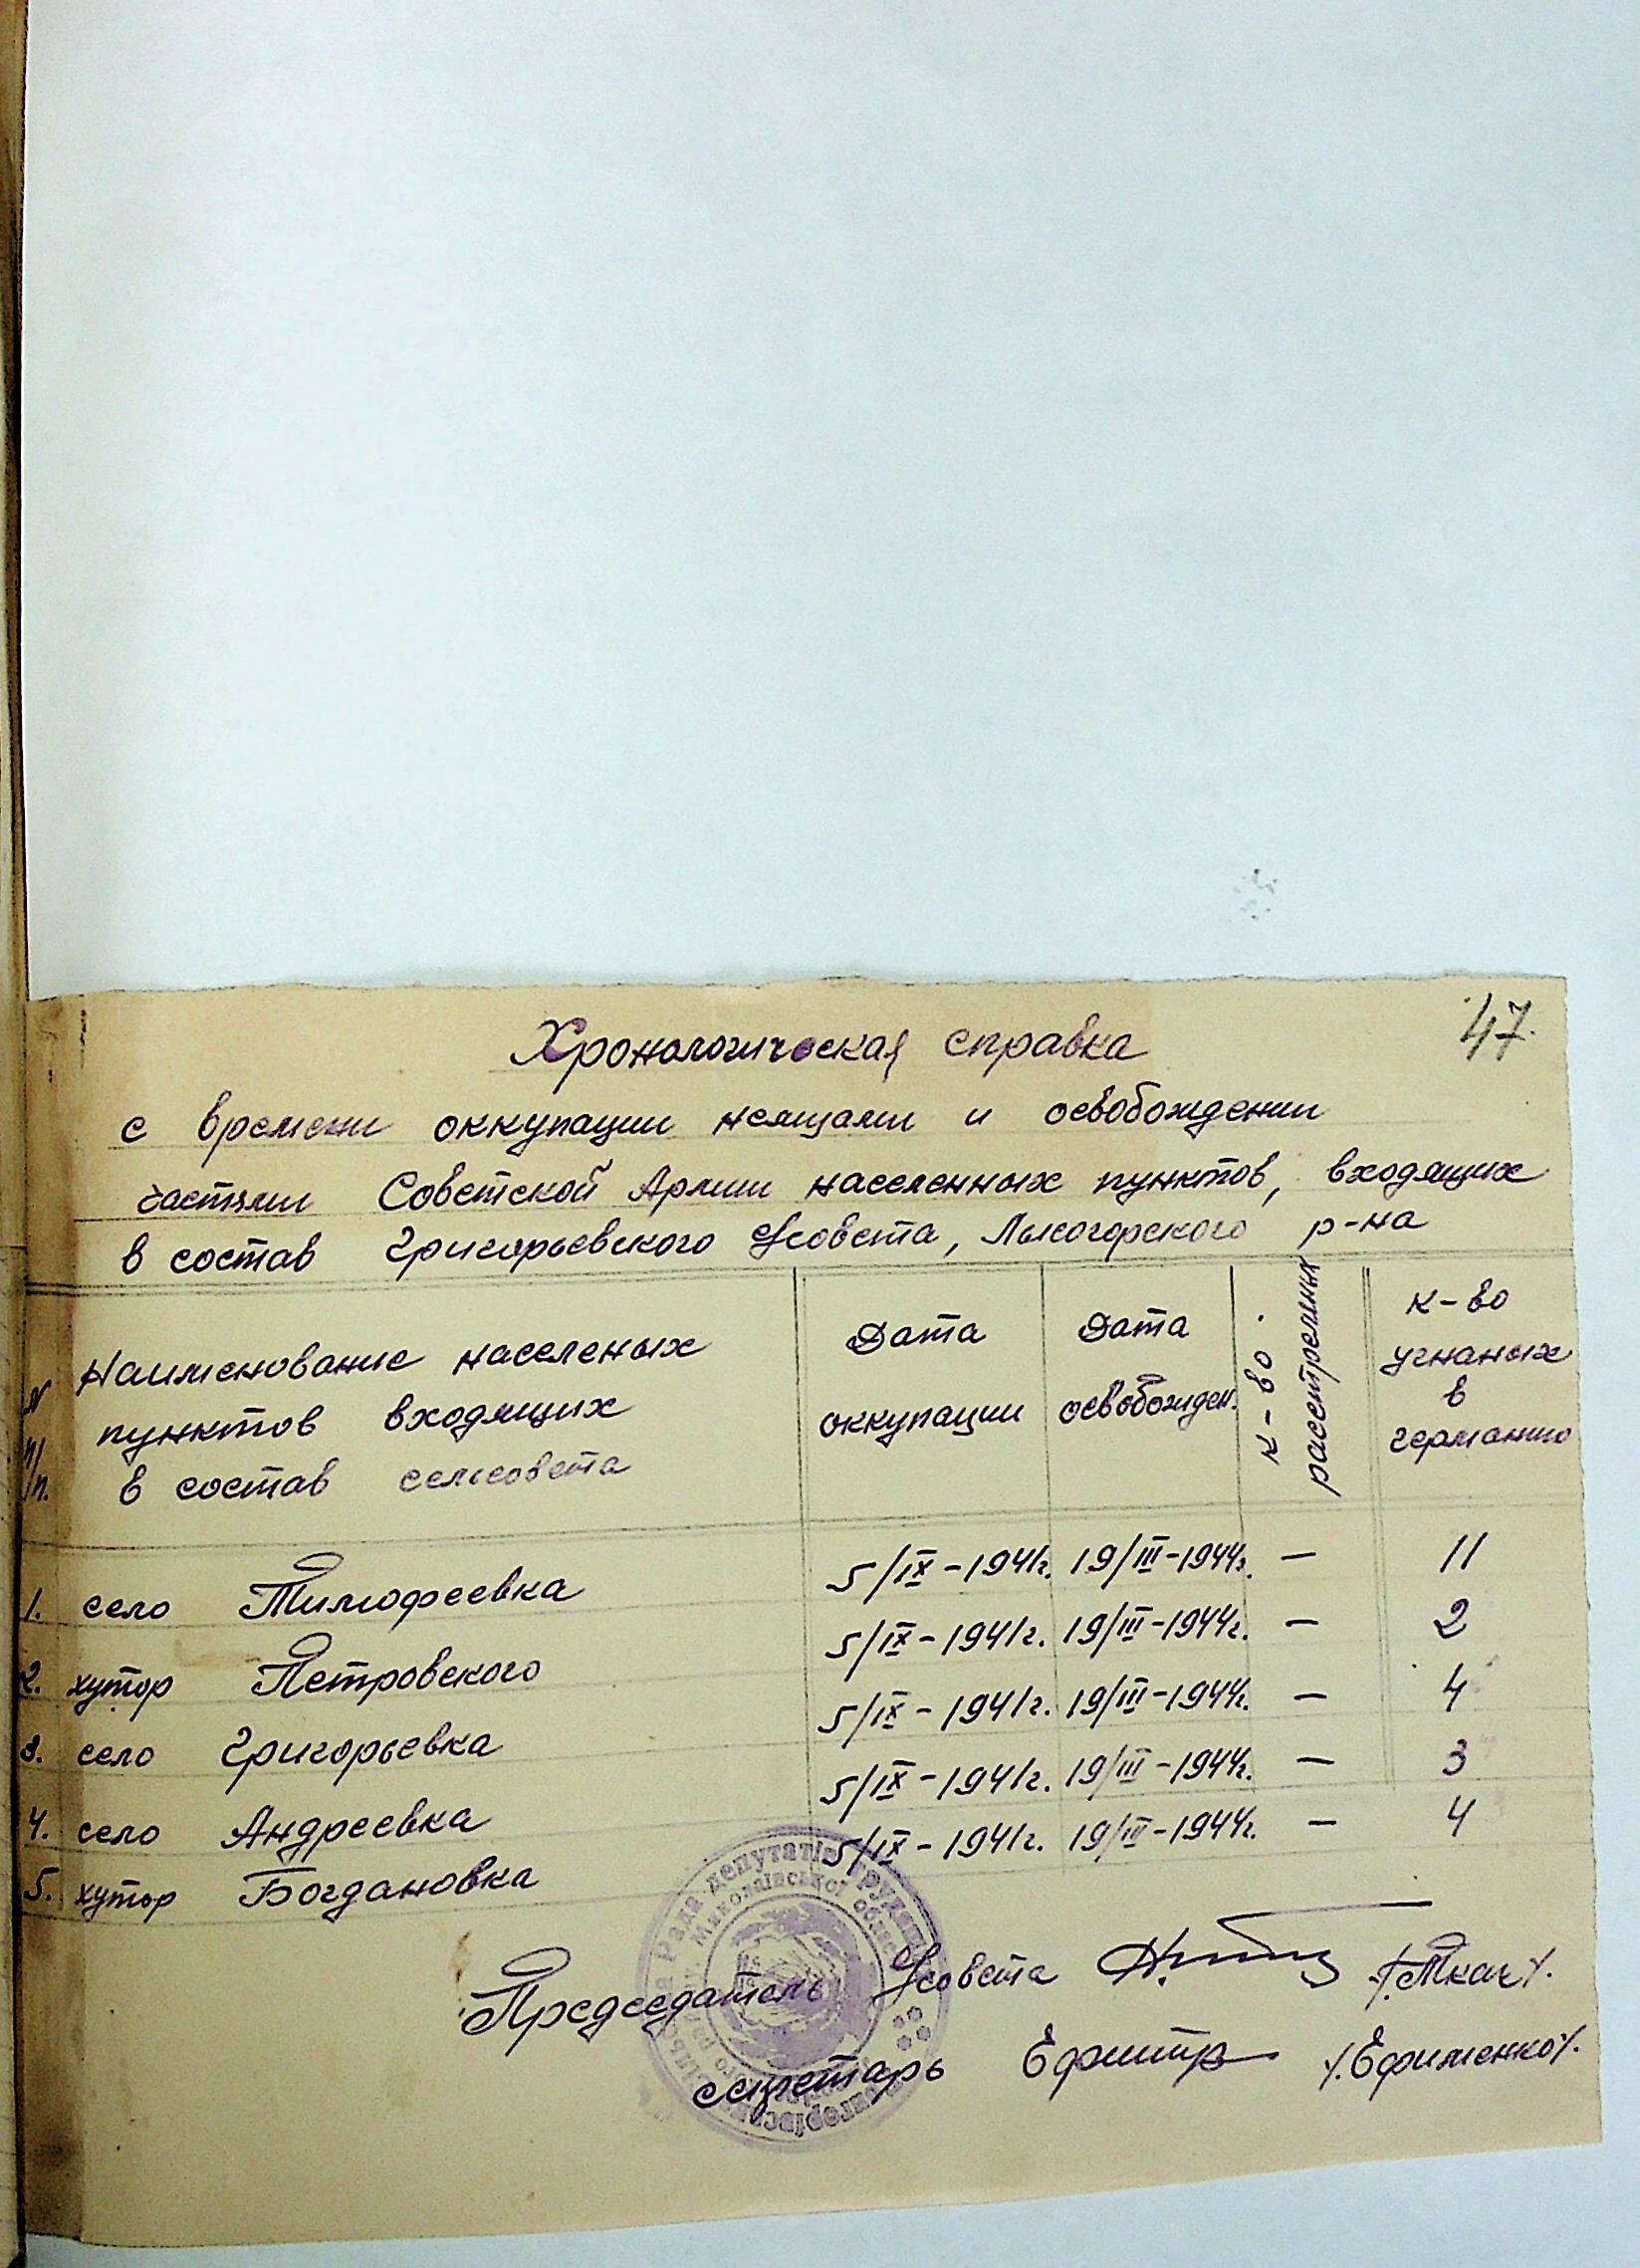 47.
Хронологическая справка
с времени оккупации немцами и освобождении
частями Советской Армии населенных пунктов, входящих
в состав Григорьевского с/совета, Лысогорского р-на
N п/п. | Наименование населеных пунктов входящих в состав сельсовета | Дата оккупации | Дата освобожден. | к-во расстреляных | к-во угнаных в германию
1. село Тимофеевка 5/IX-1941г. 19/III-1944г. — 11
2. хутор Петровского 5/IX-1941г. 19/III-1944г. — 2
3. село Григорьевка 5/IX-1941г. 19/III-1944г. — 4
4. село Андреевка 5/IX-1941г. 19/III-1944г. — 3
5. хутор Богдановка 5/IX-1941г. 19/III-1944г. — 4
Председатель с/совета /.Ткач/.
секретарь /.Ефименко/.
Рада депутатів
Миколаївської